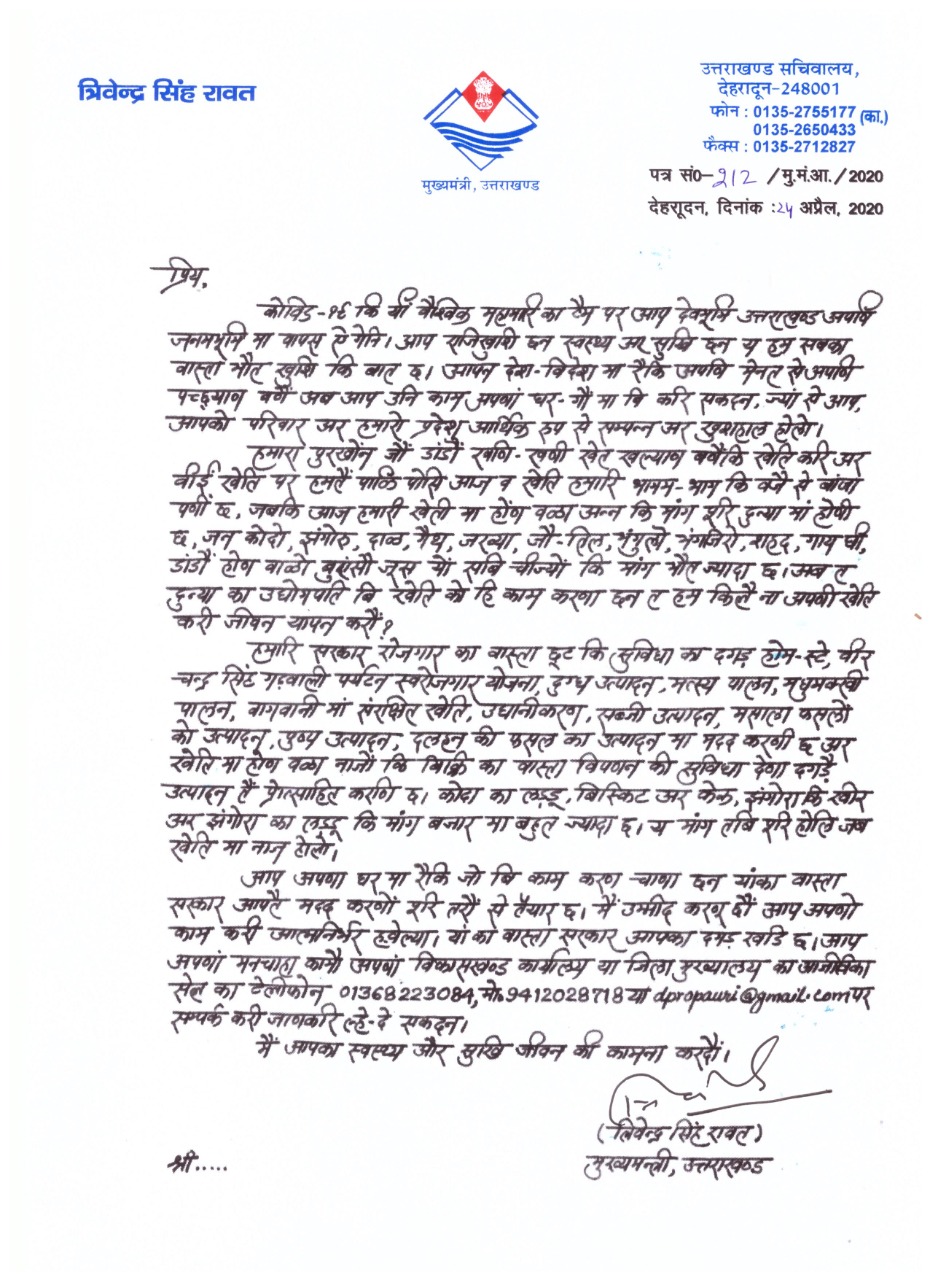 त्रिवेन्द्र सिंह रावत
मुख्यमंत्री, उत्तराखण्ड
उत्तराखण्ड सचिवालय,
देहरादून-248001
फोन : 0135-2755177 (का.)
0135-2650433
फैक्स : 0135-2712827
पत्र सं0-212 /मु.मं.आ./2020
देहरादून, दिनांक :24 अप्रैल, 2020
प्रिय,
कोविड-१९ कि यीं वैश्विक महामारि का टैम पर आप देवभूमि उत्तराखण्ड अपणि
जनमभूमि मा वापस ऐ गेनि। आप राजिखुशि छन स्वस्थ्य अर सुखि छन य हम सबका
वास्ता भौत खुशि कि बात छ। आपन देश-विदेश मा रैकि अपणि मेनत से अपणी
पच्छ्याण बणैं अब आप उनि काम अपणां घर-गौं मा बि करि सकदन, ज्यां से आप,
आपको परिवार अर हमारो प्रदेश आर्थिक रुप से सम्पन्न अर खुशहाल होलो।
हमारा पुरखोंन जौं डांडों खणि-खणी खेत खल्याण बणैंकि खेति करि अर
वीईं खेति पर हमतैं पालि पोसि आज व खेति हमारि भागम-भाग कि वजै से बांजा
पणीं छ, जबकि आज हमारी खेती मा होंण वळा अन्न कि मांग सरि दुन्या मां होणी
छ, जन कोदो, झंगोरु, दाळ, गैथ, जख्या, जौ-तिल, भंगुलो, भंगजिरो, शहद, गाय घी,
डांडौं होण वाळो बुरांसौ जूस यों सबि चीज्यों कि मांग भौत ज्यादा छ। अब त
दुन्या का उद्योगपति बि खेति को हि काम करणा छन त हम किलै ना अपणी खेति
करी जीवन यापन करौं?
हमारि सरकार रोजगार का वास्ता छूट कि सुविधा का दगड़ होम-स्टे, वीर
चन्द्र सिंह गढ़वाली पर्यटन स्वरोजगार योजना, दुग्ध उत्पादन, मत्स्य पालन, मधुमक्खी
पालन, बागवानी मां संरक्षित खेति, उद्यानीकरण, सब्जी उत्पादन, मसाला फसलों
को उत्पादन, पुष्प उत्पादन, दलहन की फसल का उत्पादन मा मदद करणी छ अर
खेति मा होण वळा नाजौं कि बिक्रि का वास्ता विपणन की सुविधा देणा दगड़ै
उत्पादन तैं प्रोत्साहित करणि छ। कोदा का लड्डू, बिस्किट अर केक, झंगोरा कि खीर
अर झंगोरा का लड्डू कि मांग बजार मा बहुत ज्यादा छ। य मांग तबि सरि होलि जब
खेति मा नाज होलो।
आप अपणा घर मा रैकि जो बि काम करण चाणा छन यांका वास्ता
सरकार आपतै मदद करणों सरि तरौं से तैयार छ। मैं उम्मीद करणू छौं आप अपणो
काम करी आत्मनिर्भर ह्वेल्या। यां का वास्ता सरकार आपका दगड़ खडि छ। आप
अपणां मनचाहा कामौ अपणां विकासखण्ड कार्यालय या जिला मुख्यालय का आजीविका
सेल का टेलीफोन 01368223084, मो० 9412028718 या dpropauri@gmail.com पर
सम्पर्क करी जाणकरि ल्हे-दे सकदन।
मैं आपका स्वस्थ्य और सुखि जीवन की कामना करदौं।
(त्रिवेन्द्र सिंह रावत)
श्री..... मुख्यमन्त्री, उत्तराखण्ड